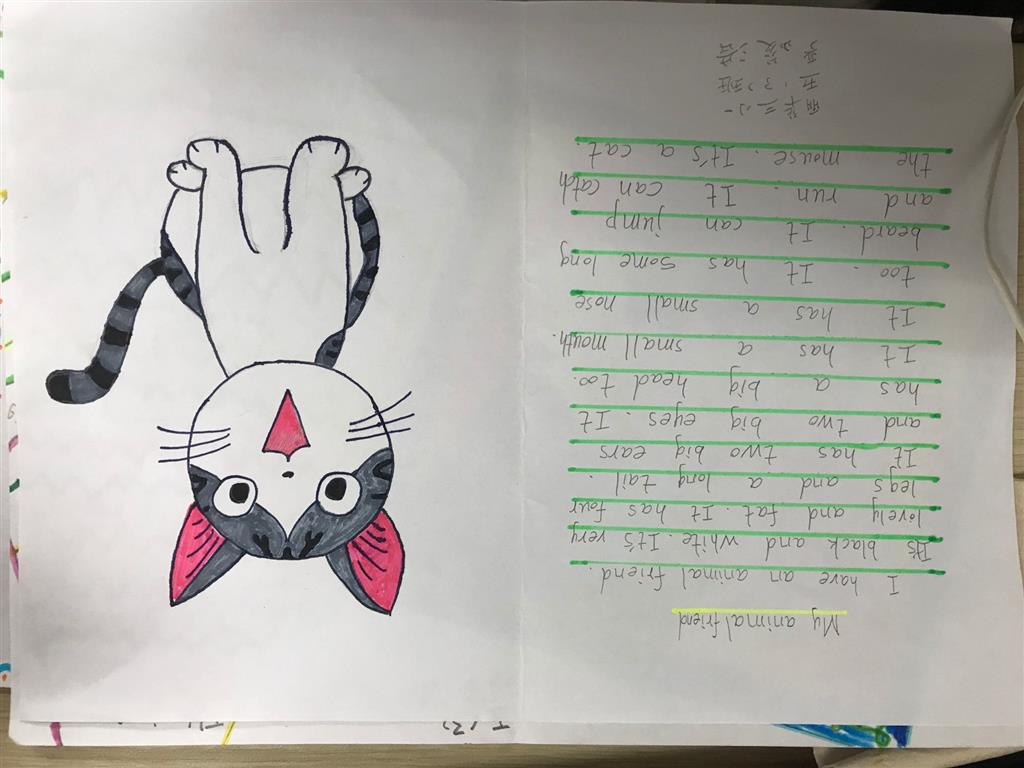 My animal friend
I have an animal friend.
It's black and white. It's very
lovely and fat. It has four
legs and a long tail.
It has two big ears
and two big eyes. It
has a big head too.
It has a small mouth.
It has a small nose
too. It has some long
beard. It can jump
and run. It can catch
the mouse. It's a cat.
三小
五(3)班